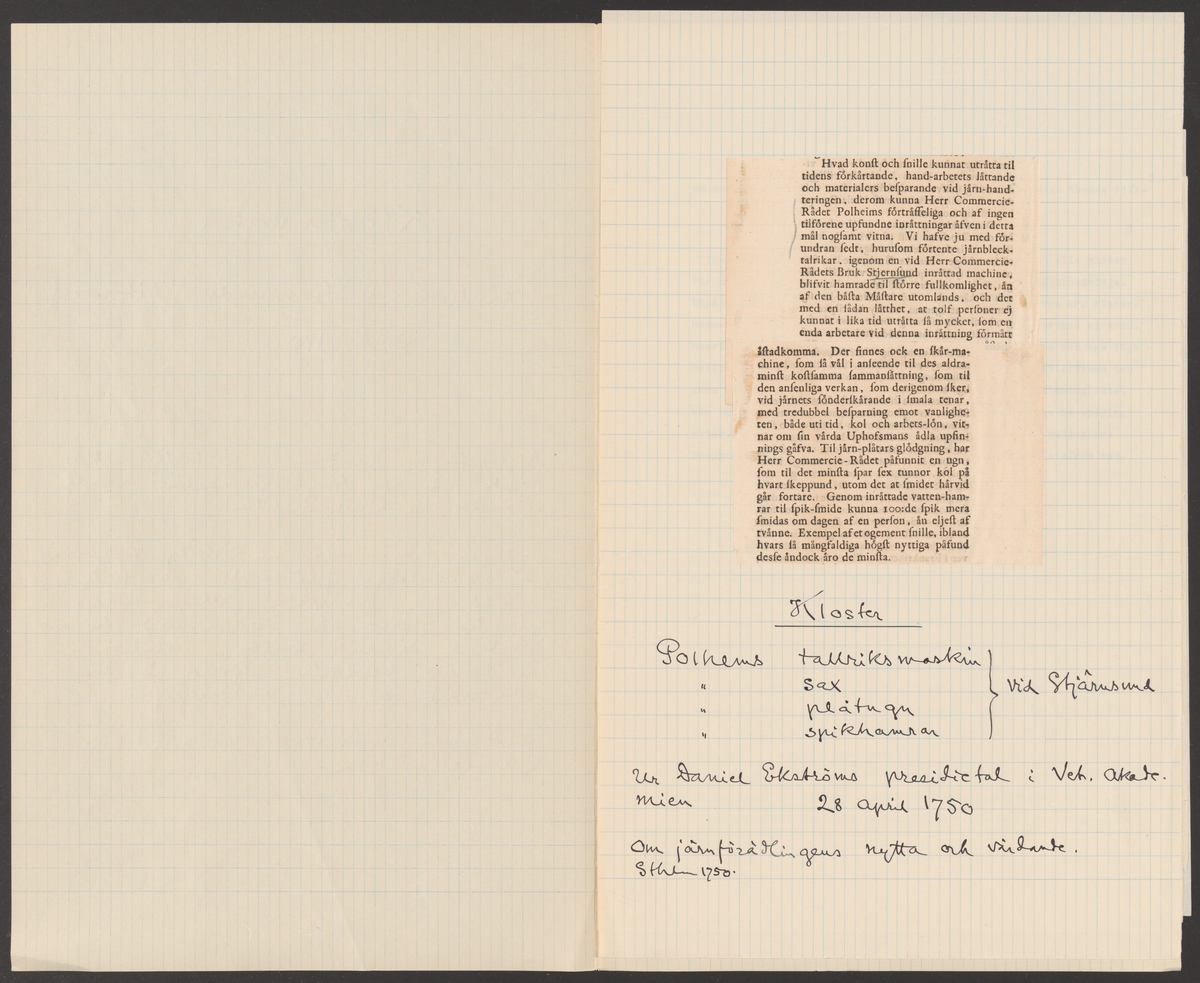 Hvad konſt och ſnille kunnat utråtta til
tidens förkårtande, hand-arbetets låttande
och materialers beſparande vid jårn-hand-
teringen, derom kunna Herr Commercie-
Rådet Polheims förtråffeliga och af ingen
tilförene upfundne inråttningar åfven i detta
mål nogſamt vitna. Vi hafve ju med för-
undran ſedt, huruſom förtente jårnbleck-
talrikar, igenom en vid Herr Commercie-
Rådets Bruk Stjernſund inråttad machine,
blifvit hamrade til ſtörre fullkomlighet, ån
af den båſta Måſtare utomlands, och det
med en ſådan låtthet, at tolf perſoner ej
kunnat i lika tid utråtta ſå mycket, ſom en
enda arbetare vid denna inråttning förmått
åſtadkomma. Der finnes ock en ſkår-ma-
chine, ſom ſå vål i anſeende til des aldra-
minſt koſtſamma ſammanſåttning, ſom til
den anſenliga verkan, ſom derigenom ſker,
vid jårnets ſönderſkårande i ſmala tenar,
med tredubbel beſparning emot vanlighe-
ten, både uti tid, kol och arbets-lön, vit-
nar om ſin vårda Uphofsmans ådla upfin-
nings gåfva. Til jårn-plåtars glödgning, har
Herr Commercie-Rådet påfunnit en ugn,
ſom til det minſta ſpar ſex tunnor kol på
hvart ſkeppund, utom det at ſmidet hårvid
går fortare. Genom inråttade vatten-ham-
rar til ſpik-ſmide kunna 100:de ſpik mera
ſmidas om dagen af en perſon, ån eljeſt af
tvånne. Exempel af et ogement ſnille, ibland
hvars ſå mångfaldiga högſt nyttiga påfund
desſe åndock åro de minſta.
Kloster
Polhems tallriksmaskin
" sax vid Stjärnsund
" plåtugn
" spikhamrar
Ur Daniel Ekströms presidietal i Vet. Akade-
mien 28 april 1750
Om järnförädlingens nytta och vårdande.
Sthlm 1750.